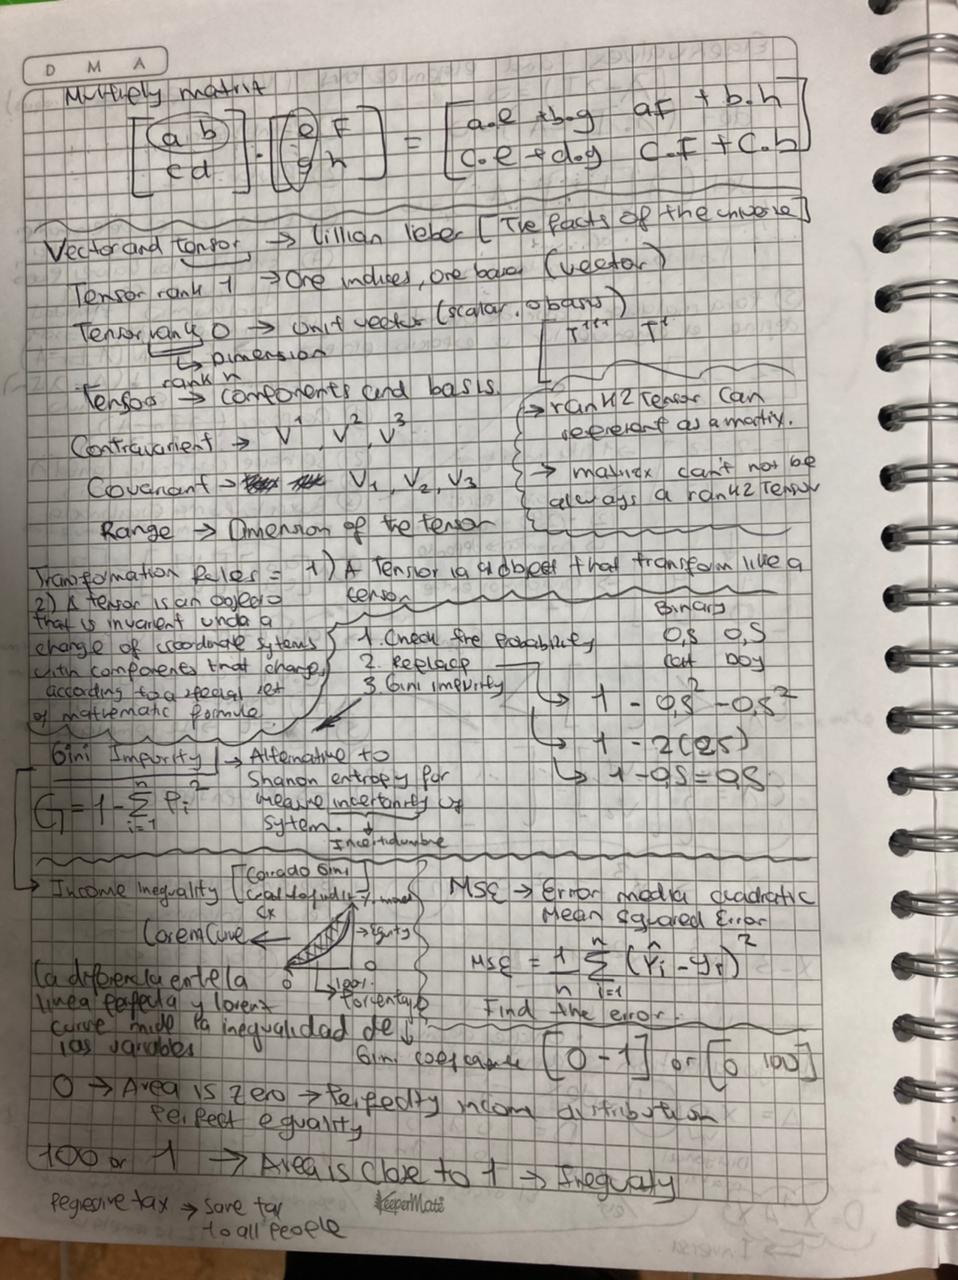 D M A
Multiply matrix
[a b
c d] . [e F
g h] = [a.e + b.g aF + b.h
c.e + d.g c.F + c.h]
Vector and tensor → Lillian lieber [The facts of the universe]
Tensor rank 1 → One indices, one base (vector)
Tensor rank 0 → Unit vector (scalar, 0 basis)
↳ Dimension
rank n
[T¹¹¹ T¹
Tensor → components and basis.
Contravarient → V¹, V², V³
Covariant → V₁, V₂, V₃
Range → Dimension of the tensor
→ rank 2 tensor can
represent as a matrix.
→ matrix can't not be
always a rank 2 Tensor
Transformation Rules = 1) A Tensor is a object that transform like a
tensor
2) A tensor is an object
that is invarient unda a
change of coordinate sytems
with components that change,
according to a special set
of mathematic formule.
1. Check the probability
2. Replace
3. Gini impurity
Binary
0,5 0,5
Cat Doy
→ 1 - 0,5² - 0,5²
↳ 1 - 2(25)
↳ 1 - 0,5 = 0,5
Gini Impurity → Alternative to
Shanon entropy for
meaure incertainty of
system.
↓
Incertidumbre
G = 1 - Σ Pi²
n
i=1
→ Income inequality [Corrado Gini
Lorem Curve ←
→ Equity
0 0
100%
→ Porcentaje
La diferencia entre la
linea perfecta y lorenz
curve mide la inequalidad de
las variables
MSE → Error media cuadratic
Mean Squared Error
MSE = 1/n Σ (Ŷi - yi)²
n
i=1
Find the error.
Gini coeficiente [0 - 1] or [0 100]
0 → Area is zero → Perfectly incom distribution
Perfect equality
100 or 1 → Area is close to 1 → Inequaty
Regresive tax → Same tax
to all people
KeeperMate